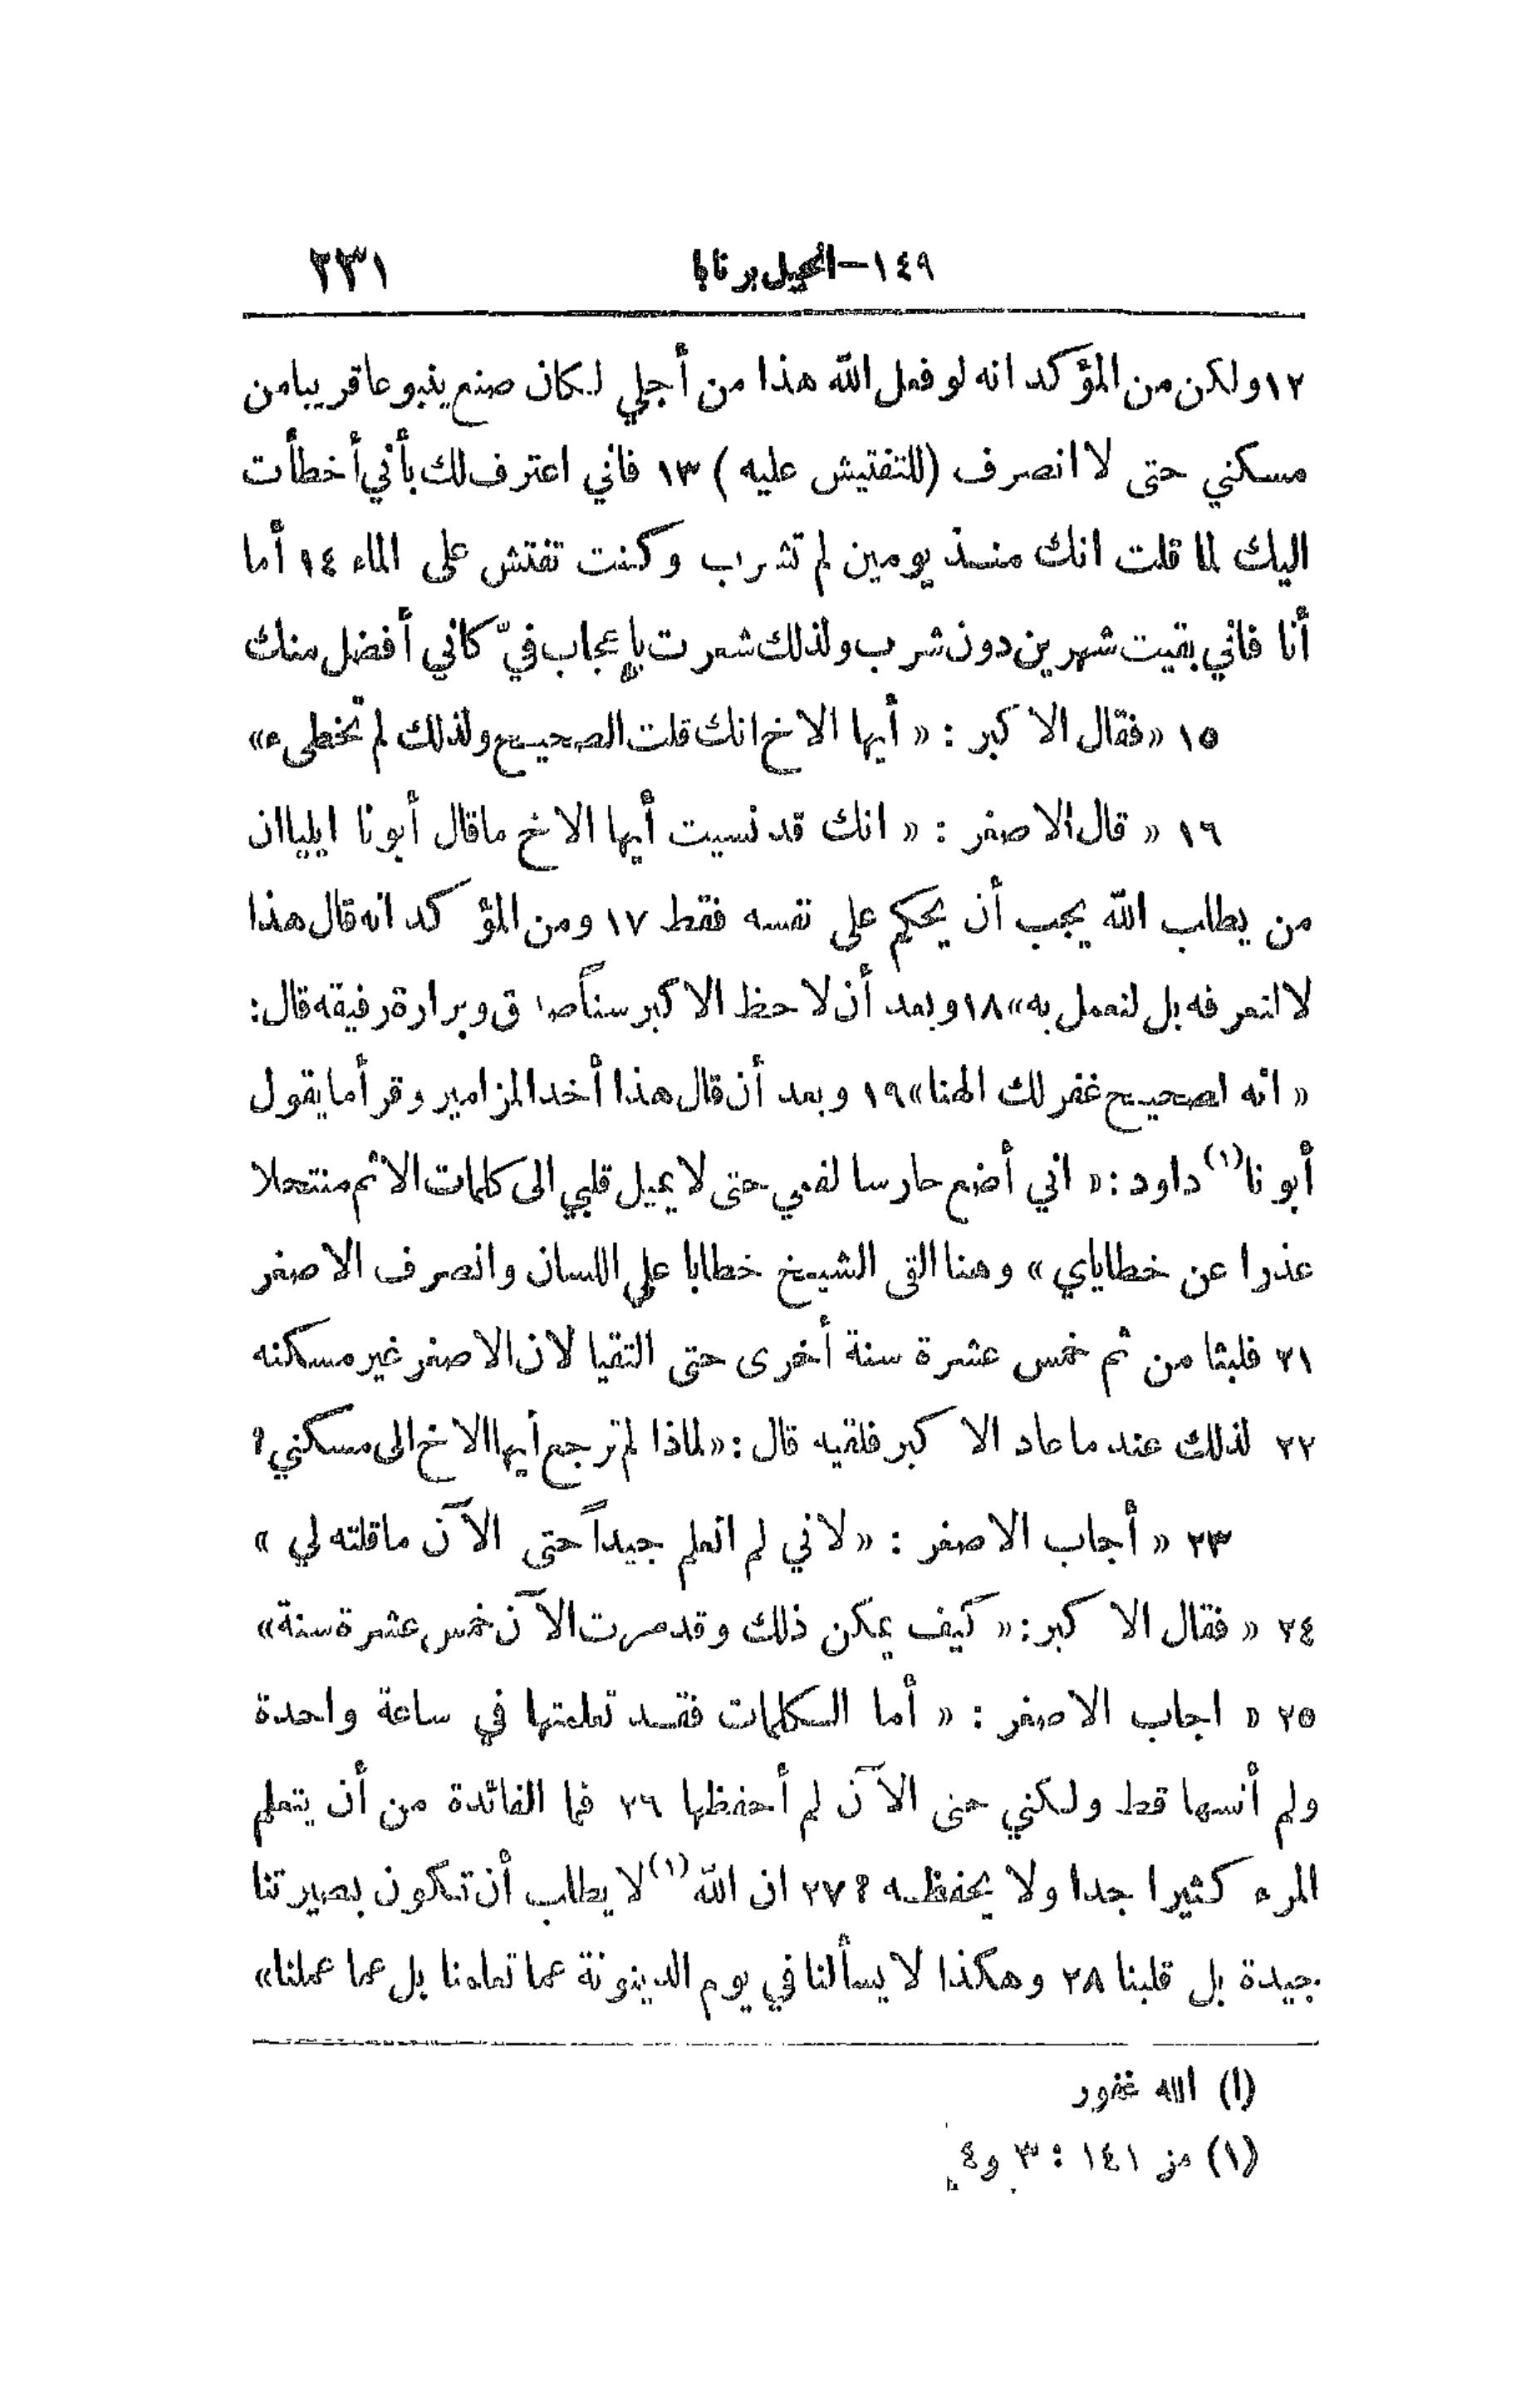 ١٤٩ – انجيل برنابا ٢٣١
١٢ ولكن من المؤكد انه لو فعل الله هذا من أجلي لكان صنع ينبوعا قريبا من
مسكني حتى لا انصرف (للتفتيش عليه) ١٣ فاني اعترف لك بأني أخطأت
اليك لما قلت انك منذ يومين لم تشرب وكنت تفتش على الماء ١٤ أما
أنا فاني بقيت شهرين دون شرب ولذلك شعرت بإعجاب فيّ كاني أفضل منك
١٥ «فقال الاكبر : « أيها الاخ انك قلت الصحيح ولذلك لم تخطىء»
١٦ « قال الاصغر : « انك قد نسيت أيها الاخ ماقال أبونا ايليا ان
من يطلب الله يجب أن يحكم على نفسه فقط ١٧ ومن المؤكد انه قال هذا
لا لنعرفه بل لنعمل به» ١٨ وبعد أن لاحظ الاكبر سناً ص ق وبرارة رفيقه قال:
« انه لصحيح غفر لك الهنا» ١٩ وبعد أن قال هذا أخد المزامير وقرأ ما يقول
أبونا(١) داود : « اني أضع حارسا لفمي حتى لا يميل قلبي الى كلمات الاثم منتحلا
عذرا عن خطاياي » وهنا القى الشيخ خطابا على اللسان وانصرف الاصغر
٢١ فلبثا من ثم خمس عشرة سنة أخرى حتى التقيا لان الاصغر غير مسكنه
٢٢ لذلك عند ما عاد الاكبر فلقيه قال : «لماذا لم ترجع أيها الاخ الى مسكني؟
٢٣ « أجاب الاصغر : « لاني لم اتعلم جيداً حتى الآن ماقلته لي »
٢٤ « فقال الاكبر : « كيف يمكن ذلك وقد مرت الآن خمس عشرة سنة»
٢٥ « اجاب الاصغر : « أما الكلمات فقد تعلمتها في ساعة واحدة
ولم أنسها قط ولكني حتى الآن لم أحفظها ٢٦ فما الفائدة من أن يتعلم
المرء كثيرا جدا ولا يحفظه ؟ ٢٧ ان الله(١) لا يطلب أن تكون بصيرتنا
جيدة بل قلبنا ٢٨ وهكذا لا يسألنا في يوم الدينونة عما تعلمنا بل عما عملنا»
(ا) الله غفور
(١) مز ١٤١ : ٣ و٤